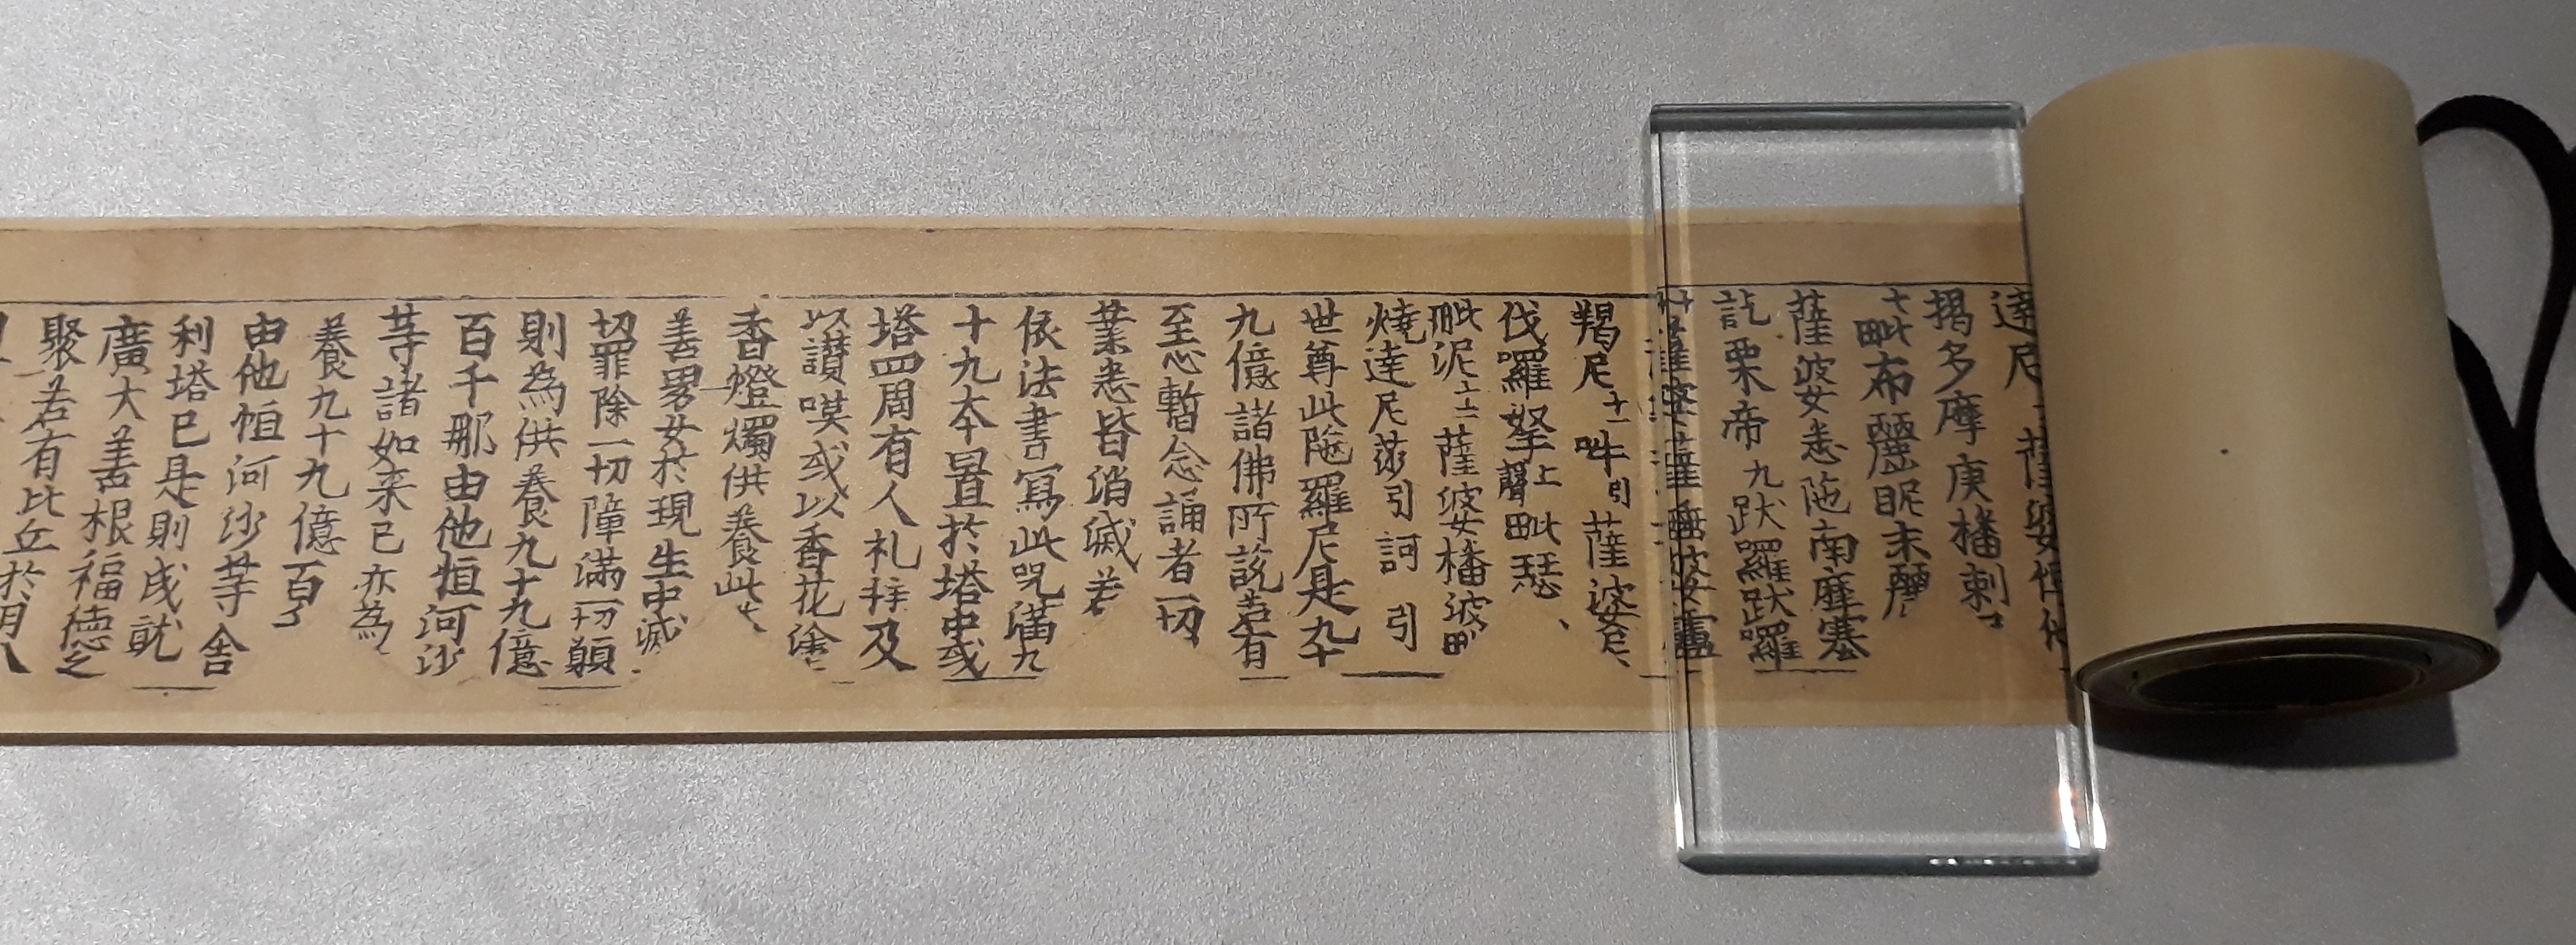 達尼 薩婆怛他
揭多摩庾播剌
毗布麗昵末麗
薩婆悉陁南摩塞
訖栗帝九跋羅跋羅
薩婆薩埵婆盧
羯尼十一吽引薩婆尼
伐羅拏上聲毗瑟
毗泥十二薩婆播波毗
燒達尼莎引訶 引
世尊此陁羅尼是九十
九億諸佛所說若有
至心暫念誦者一切
業悉皆消滅若
依法書寫此咒滿九
十九本置於塔中或
塔四周有人礼拜及
以讃嘆或以香花塗
香燈燭供養此
善男女於現生中滅
切罪除一切障滿一切願
則為供養九十九億
百千那由他恒河沙
等諸如来已亦為
養九十九億百
由他恒河沙等舍
利塔已是則成就
廣大善根福德之
聚若有比丘於月八